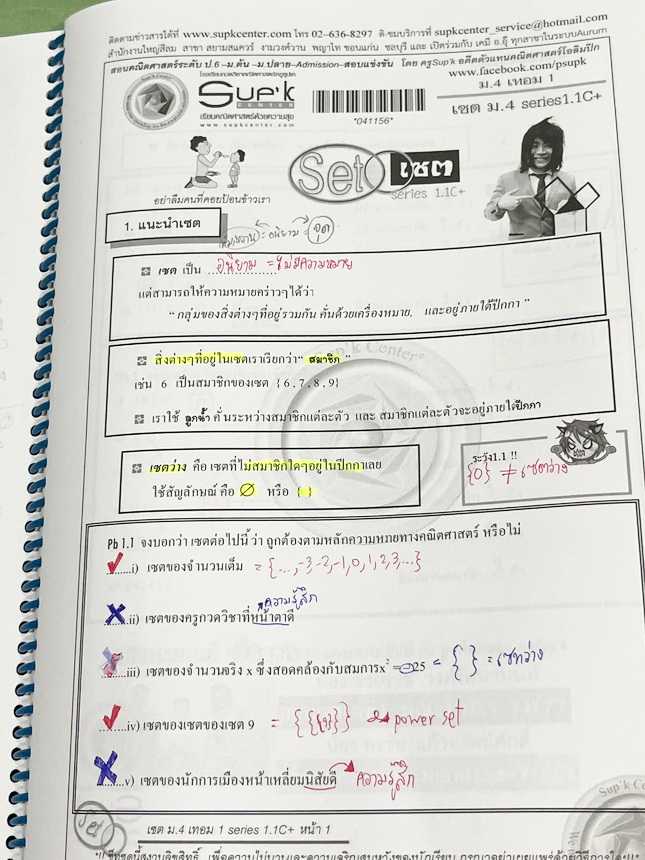 ติดตามข่าวสารได้ที่ www.supkcenter.com โทร 02-636-8297 ติ-ชมบริการที่ supkcenter_service@hotmail.com
สำนักงานใหญ่สีลม สาขา สยามสแควร์ งามวงศ์วาน พญาไท ขอนแก่น ชลบุรี และ เปิดร่วมกับ เคมี อ.อุ๊ ทุกสาขาในระบบAurum
สอนคณิตศาสตร์ระดับ ป.6-ม.ต้น-ม.ปลาย-Admission-สอบแข่งขัน โดย ครูSup'k อดีตตัวแทนคณิตศาสตร์โอลิมปิก
www.facebook.com/psupk
Sup'k
CENTER
เรียนคณิตศาสตร์ด้วยความสุข
www.supkcenter.com
*041156*
ม.4 เทอม 1
เซต ม.4 series1.1C+
Set เซต
series 1.1C+
อย่าลืมคนที่คอยป้อนข้าวเรา
1. แนะนำเซต
= อนิยาม = จุด
เซต เป็น อนิยาม = ไม่มีความหมาย
แต่สามารถให้ความหมายคร่าวๆได้ว่า
“ กลุ่มของสิ่งต่างๆที่อยู่รวมกัน คั่นด้วยเครื่องหมาย, และอยู่ภายใต้ปีกกา ”
สิ่งต่างๆที่อยู่ในเซตเราเรียกว่า “ สมาชิก ”
เช่น 6 เป็นสมาชิกของเซต {6,7,8,9}
เราใช้ ลูกน้ำ คั่นระหว่างสมาชิกแต่ละตัว และ สมาชิกแต่ละตัวจะอยู่ภายใต้ปีกกา
เซตว่าง คือ เซตที่ไม่สมาชิกใดๆอยู่ในปีกกาเลย
ใช้สัญลักษณ์ คือ ∅ หรือ { }
ระวัง1.1 !!
{0} ≠ เซตว่าง
Pb 1.1 จงบอกว่า เซตต่อไปนี้ ว่า ถูกต้องตามหลักความหมายทางคณิตศาสตร์ หรือไม่
✓ i) เซตของจำนวนเต็ม = {...,-3,-2,-1,0,1,2,3,...}
ความรู้สึก
✗ ii) เซตของครูกวดวิชาที่หน้าตาดี
iii) เซตของจำนวนจริง x ซึ่งสอดคล้องกับสมการx² = -25 = { } = เซตว่าง
✓ iv) เซตของเซตของเซต 9 = {{{9}}} power set
✗ v) เซตของนักการเมืองหน้าเหลี่ยมนิสัยดี ความรู้สึก
Set
เซต ม.4 เทอม 1 series 1.1C+ หน้า 1